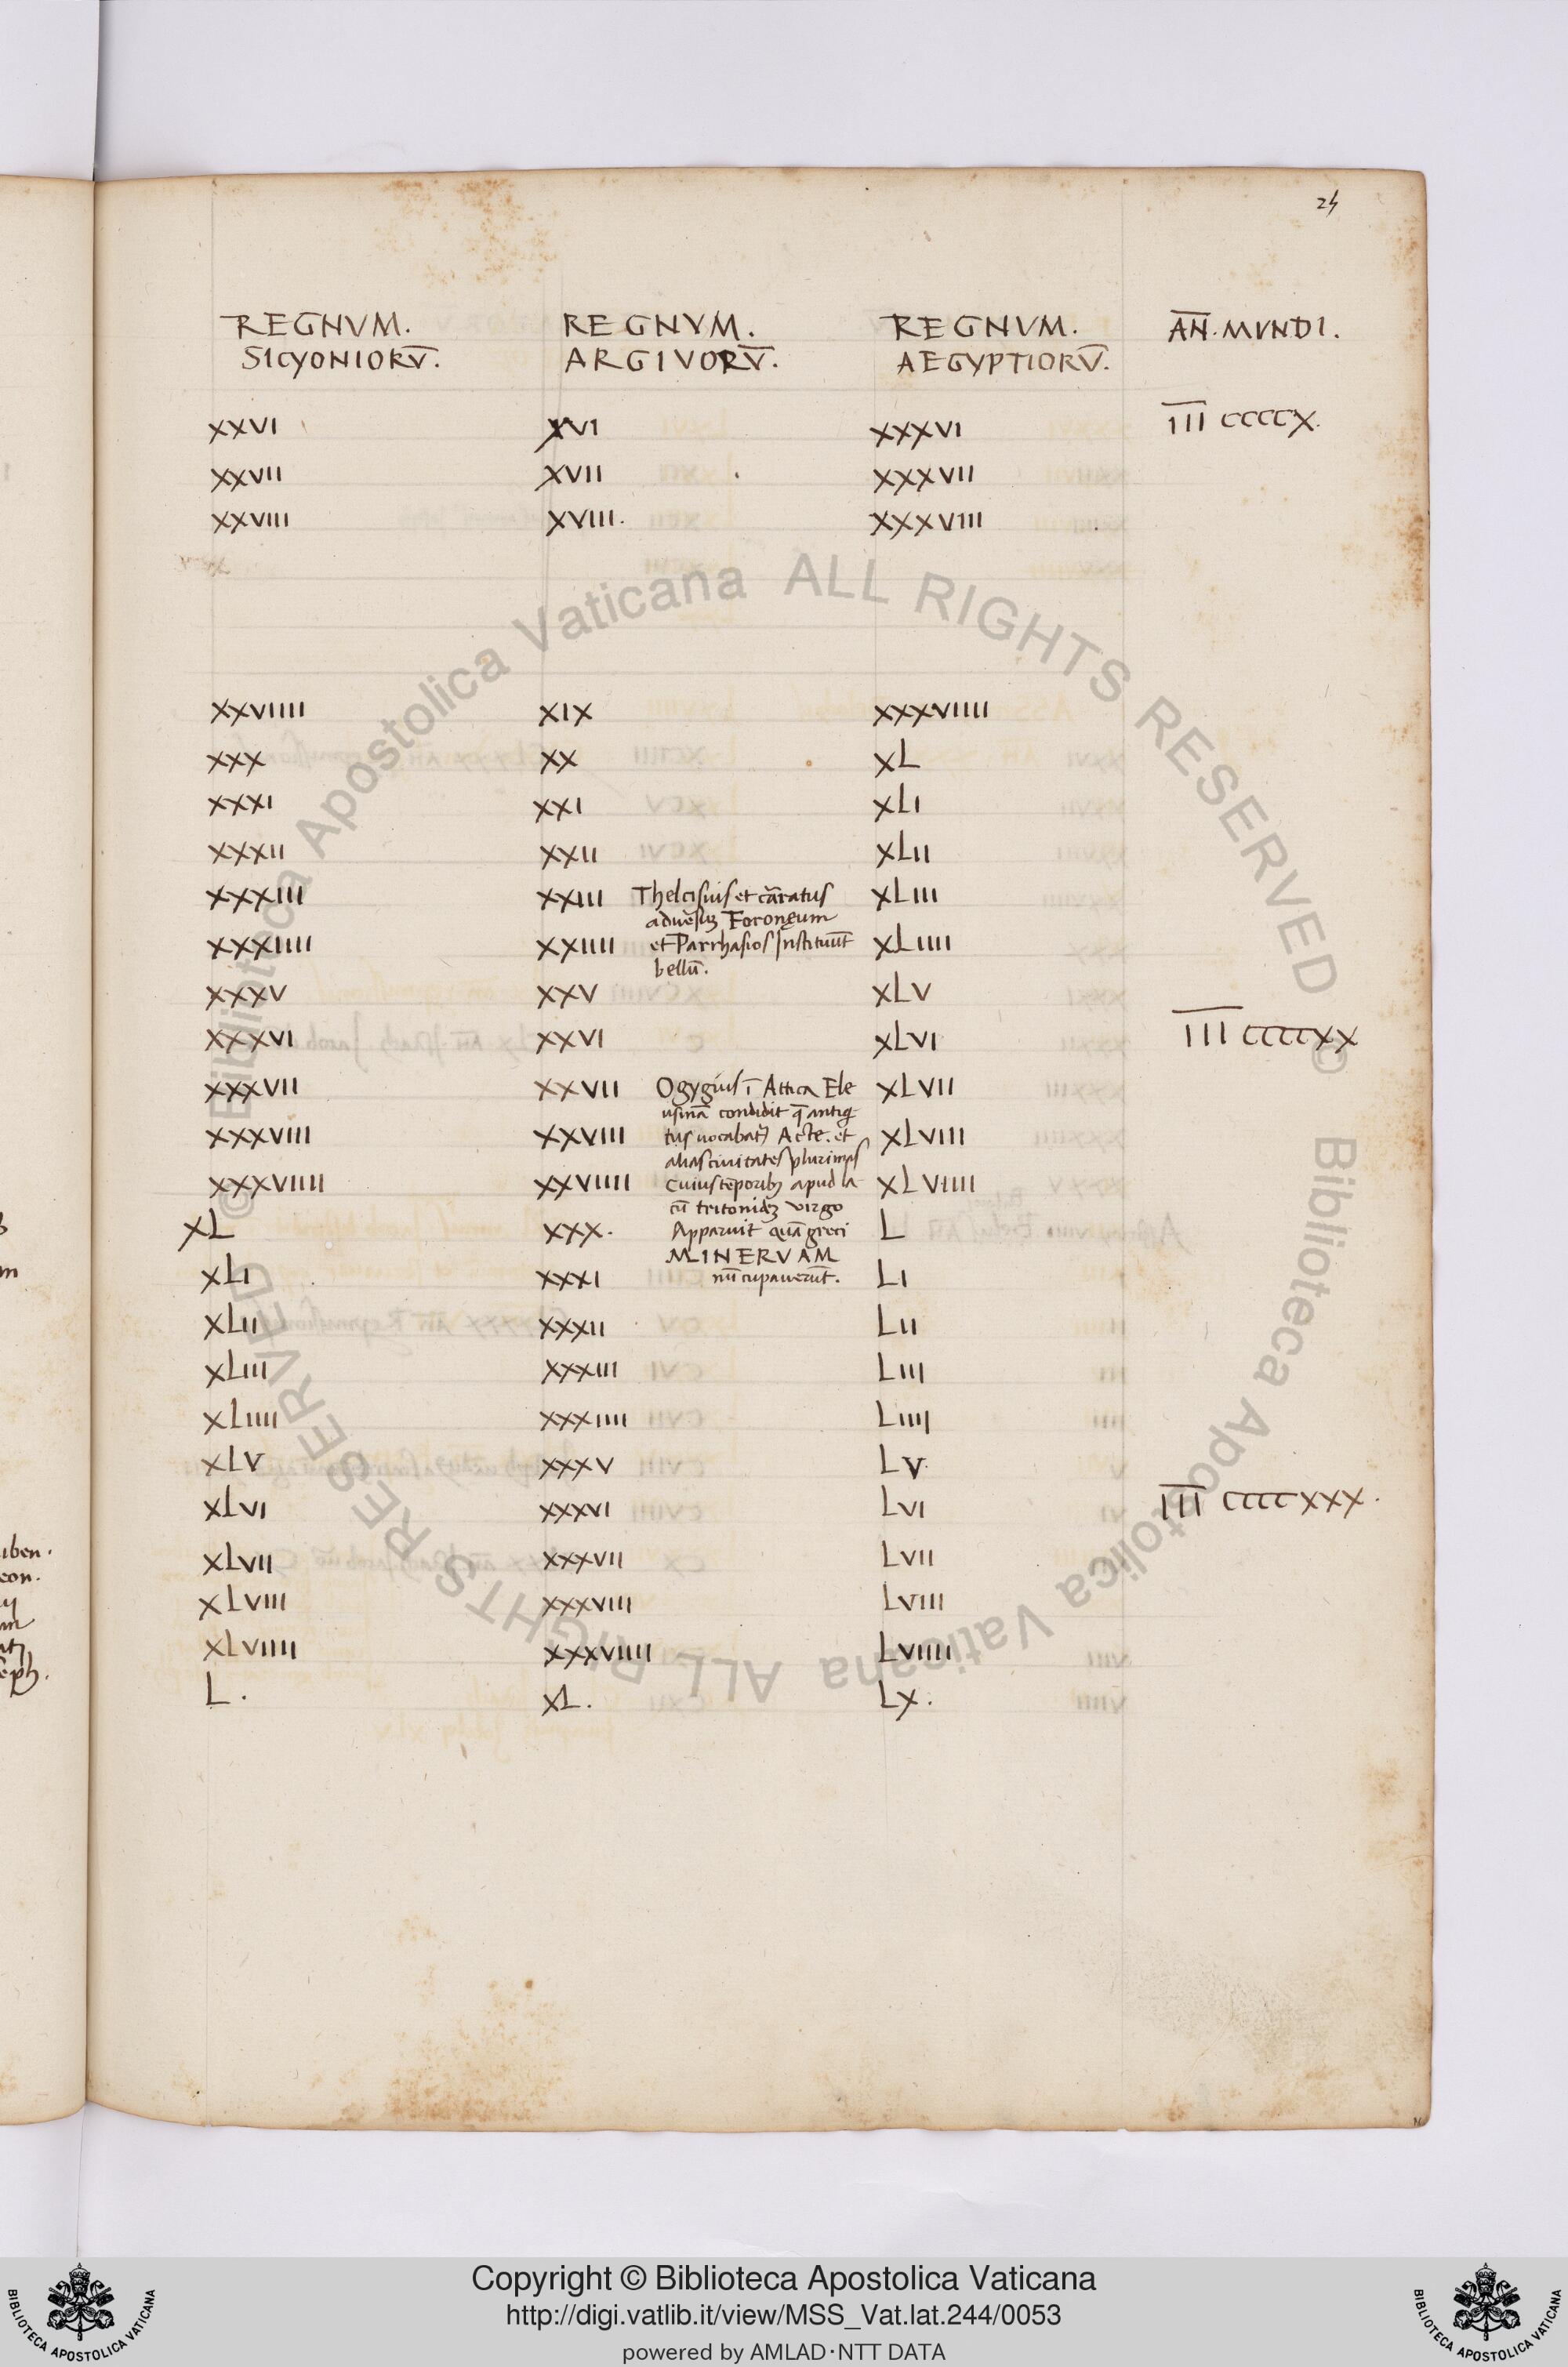 24
REGNVM. REGNVM. REGNVM. AN̅. MVNDI.
SICYONIORV̅. ARGIVORV̅. AEGYPTIORV̅.
XXVI XVI XXXVI I̅I̅I̅ CCCCX.
XXVII XVII XXXVII
XXVIII XVIII. XXXVIII
XXVIIII XIX XXXVIIII
XXX XX XL
XXXI XXI XLI
XXXII XXII XLII
XXXIII XXIII Thelcisius et cāratus XLIII
aduēsuꝫ Foronęum
XXXIIII XXIIII et Parrhasios Instituūt XLIIII
bellū.
XXXV XXV XLV
XXXVI XXVI XLVI I̅I̅I̅ CCCCXX
XXXVII XXVII Ogygius ī Attica Ele XLVII
usinā condidit q̄ antiq
XXXVIII XXVIII tus uocabat᷑ Acte. et XLVIII
alias ciuitates plurimas
XXXVIIII XXVIIII Cuius tēporibꝫ apud la XLVIIII
cū tritonideꝫ virgo
XL XXX. Apparuit quā greci L
MINERVAM
XLI XXXI nūcupauerūt. LI
XLII XXXII LII
XLIII XXXIII LIII
XLIIII XXXIIII LIIII
XLV XXXV LV.
XLVI XXXVI LVI I̅I̅I̅ CCCCXXX.
XLVII XXXVII LVII
XLVIII XXXVIII LVIII
XLVIIII XXXVIIII LVIIII
L. XL. LX.
© Biblioteca Apostolica Vaticana ALL RIGHTS RESERVED
© Biblioteca Apostolica Vaticana ALL RIGHTS RESERVED
Copyright © Biblioteca Apostolica Vaticana
http://digi.vatlib.it/view/MSS_Vat.lat.244/0053
powered by AMLAD·NTT DATA
BIBLIOTECA APOSTOLICA VATICANA
BIBLIOTECA APOSTOLICA VATICANA